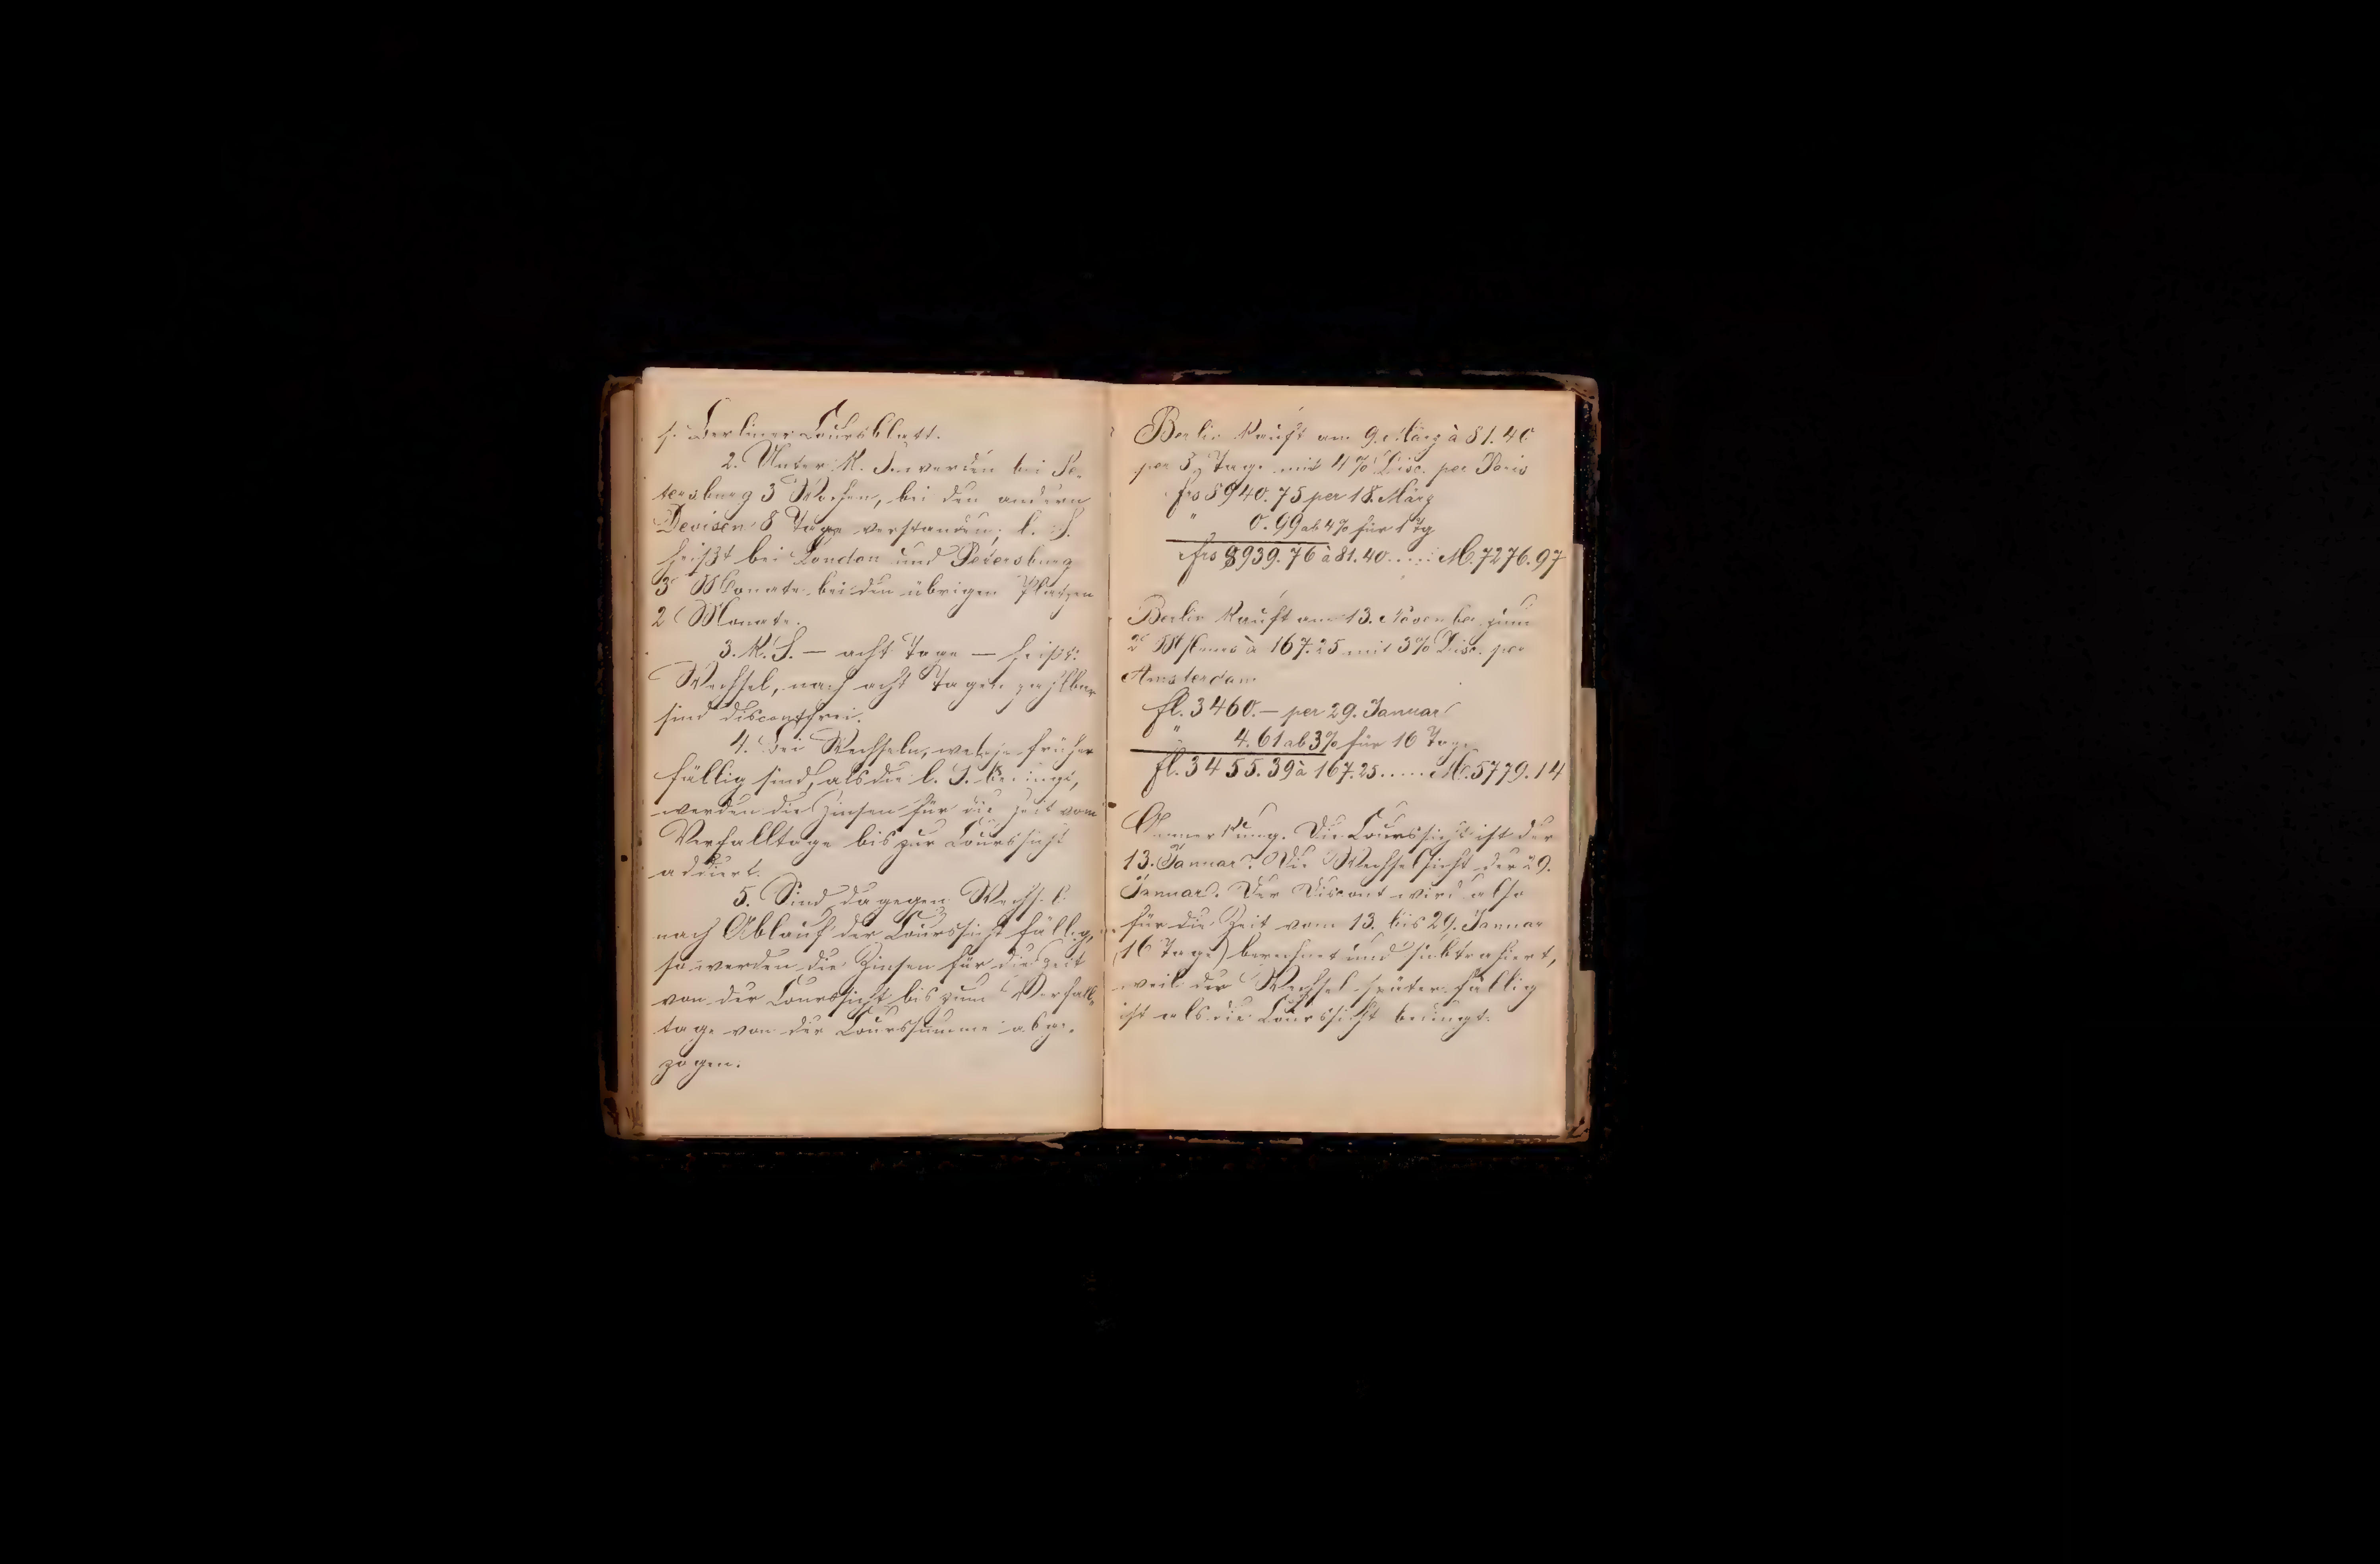 s. Berliner Coursblatt.
2. Unter K. S. werden bei Pe-
tersburg 3 Wochen, bei den andern
Devisen 8 Tage verstanden; l. S.
heißt bei London und Petersburg
3 Monate bei den übrigen Plätzen
2 Monate.
3. K. S. — acht Tage — heißt:
Wechsel, nach acht Tagen zahlbar
sind discontfrei.
4. Bei Wechseln, welche früher
fällig sind, als die l. S. bedingt,
werden die Zinsen für die Zeit vom
Verfalltage bis zur Courssicht
addiert.
5. Sind dagegen Wechsel
nach Ablauf der Courssicht fällig,
so werden die Zinsen für die Zeit
von der Courssicht bis zum Verfall-
tage von der Courssumme abge-
zogen.
Berlin kauft am 9. März à 81.40
per 8 Tage mit 4% Disc. per Paris
frs 8940.75 per 18. März
" 0.99 ab 4% für 1 Tg
frs 8939.76 à 81.40..... M. 7276.97
Berlin kauft am 13. November zum
2 Mts. à 167.25 mit 3% Disc. per
Amsterdam
fl. 3460.— per 29. Januar
" 4.61 ab 3% für 16 Tage
fl. 3455.39 à 167.25..... M. 5779.14
Anmerkung. Die Courssicht ist der
13. Januar. Die Wechselsicht der 29.
Januar. Der Discont wird also
für die Zeit vom 13. bis 29. Januar
(16 Tage) berechnet und subtrahiert,
weil der Wechsel später fällig
ist als die Courssicht bedingt.